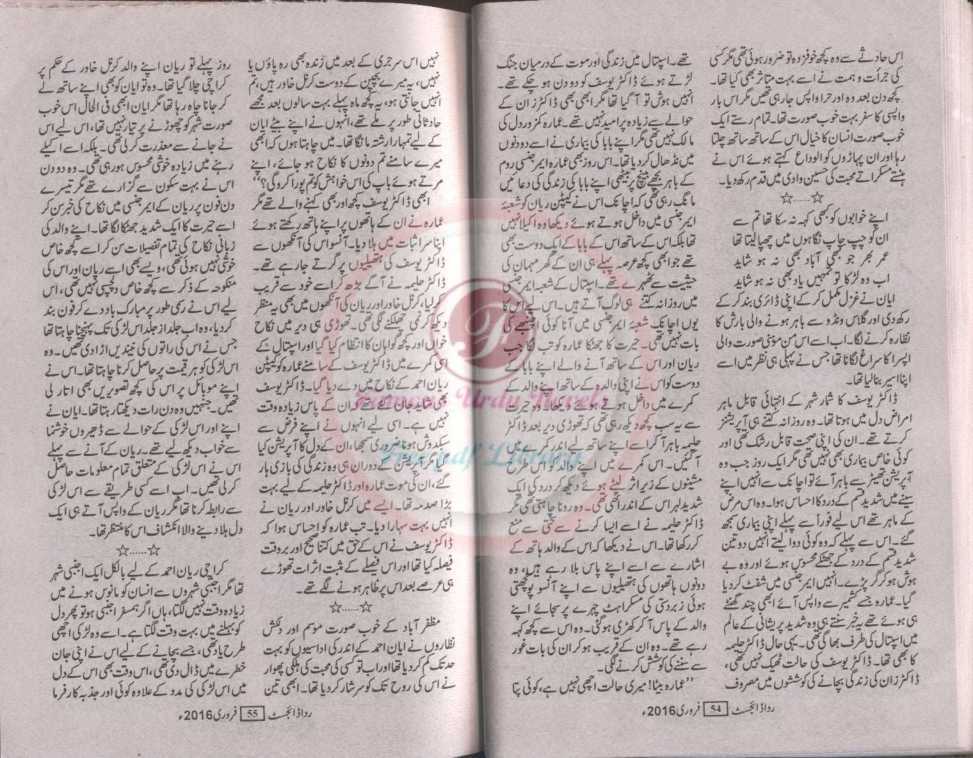 اس حادثے سے وہ کچھ خوفزدہ تو ضرور ہوئی تھی مگر کسی
کی جرأت و ہمت نے اسے بہت متاثر بھی کیا تھا۔
کچھ دن بعد وہ اور حرا واپس جا رہی تھیں مگر اس بار
واپسی کا سفر بہت خوب صورت تھا۔ تمام رستے ایک
خوب صورت انسان کا خیال اس کے ساتھ ساتھ چلتا
رہا اور ان پہاڑوں کو الوداع کہتے ہوئے اس نے
ہنستے مسکراتے محبت کی حسین وادی میں قدم رکھ دیا۔
☆......☆
اپنے خوابوں کو بھی کہہ نہ سکا تھا تم سے
ان کو چپ چاپ نگاہوں میں چھپا لیتا تھا
عمر بھر جو بھی آباد بھی نہ ہو شاید
اب وہ لڑکا تو تمہیں یاد بھی نہ ہو شاید
ایان نے غزل مکمل کر کے اپنی ڈائری بند کر کے
رکھ دی اور گلاس ونڈو سے باہر ہونے والی بارش کا
نظارہ کرنے لگا۔ اب اسے اس من موہنی صورت والی
اپسرا کا سراغ لگانا تھا جس نے پہلی ہی نظر میں اسے
اپنا اسیر بنا لیا تھا۔
ڈاکٹر یوسف کا شمار شہر کے انتہائی قابل ماہر
امراض دل میں ہوتا تھا۔ وہ روزانہ کتنے ہی آپریشنز
کرتے تھے۔ ان کی اپنی صحت قابل رشک تھی اور
کوئی خاص بیماری بھی نہیں تھی مگر ایک روز جب وہ
آپریشن تھیٹر سے باہر آئے تو اچانک سے انہیں اپنے
سینے میں شدید قسم کے درد کا احساس ہوا۔ وہ اس مرض
کے ماہر تھے اس لیے فوراً سے پہلے اپنی بیماری سمجھ
گئے۔ اس سے پہلے کہ وہ کوئی دوا لیتے انہیں دو تین
شدید قسم کے درد کے جھٹکے محسوس ہوئے اور وہ بے
ہوش ہو کر گر پڑے۔ انہیں ایمرجنسی میں شفٹ کر دیا
گیا۔ عمارہ جسے کشمیر سے واپس آئے ابھی چند گھنٹے
ہی ہوئے تھے یہ خبر سنتے ہی وہ شدید پریشانی کے عالم
میں اسپتال کی طرف بھاگی تھی۔ یہی حال ڈاکٹر حلیمہ
کا بھی تھا۔ ڈاکٹر یوسف کی حالت ٹھیک نہیں تھی،
ڈاکٹر زان کی زندگی بچانے کی کوششوں میں مصروف
تھے۔ اسپتال میں زندگی اور موت کے درمیان جنگ
لڑتے ہوئے ڈاکٹر یوسف کو دو دن ہو چکے تھے۔
انہیں ہوش تو آ گیا تھا مگر ابھی بھی ڈاکٹر ان کے
حوالے سے زیادہ پرامید نہیں تھے۔ عمارہ کمزور دل کی
مالک نہیں تھی مگر اپنے بابا کی بیماری نے اسے دو دنوں
میں نڈھال کر دیا تھا۔ اس روز بھی عمارہ ایمرجنسی روم
کے باہر بچھے بینچ پر بیٹھی اپنے بابا کی زندگی کی دعائیں
مانگ رہی تھی کہ اچانک اس نے کیپٹن ریان کو شعبۂ
ایمرجنسی میں داخل ہوتے ہوئے دیکھا، وہ اکیلا نہیں
تھا بلکہ اس کے ساتھ اس کے بابا کے ایک دوست بھی
تھے جو ابھی کچھ عرصہ پہلے ہی ان کے گھر مہمان کی
حیثیت سے ٹھہرے تھے۔ اسپتال کے شعبہ ایمرجنسی
میں روزانہ کتنے ہی لوگ آتے ہیں۔ اس لیے اس کا
یوں اچانک شعبۂ ایمرجنسی میں آنا کوئی اچنبھے کی
بات نہیں تھی۔ حیرت کا جھٹکا عمارہ کو تب لگا جب
ریان اور اس کے ساتھ آنے والے اپنے بابا کے
دوست کو اس نے اپنی والدہ کے ساتھ اپنے والد کے
کمرے میں داخل ہوتے ہوئے دیکھا۔ وہ حیرت
سے یہ سب کچھ دیکھ رہی تھی کہ تھوڑی دیر بعد ڈاکٹر
حلیمہ باہر آ کر اسے اپنے ساتھ لیے اندر کمرے میں
آ گئیں۔ اس کمرے میں اپنے والد کو اس طرح
مشینوں کے زیر اثر لیٹے ہوئے دیکھ کر درد کی ایک
شدید لہر اس کے اندر اٹھی تھی۔ وہ رونا چاہتی تھی مگر
ڈاکٹر حلیمہ نے اسے ایسا کرنے سے سختی سے منع
کر رکھا تھا۔ اس نے دیکھا کہ اس کے والد ہاتھ کے
اشارے سے اسے اپنے پاس بلا رہے ہیں، وہ
دونوں ہاتھوں کی ہتھیلیوں سے اپنے آنسو پونچھتی
ہوئی زبردستی کی مسکراہٹ چہرے پر سجائے اپنے
والد کے پاس آ کر کھڑی ہو گئی۔ وہ اس سے کچھ کہہ
رہے تھے۔ وہ ان کے قریب ہو کر ان کی بات غور
سے سننے کی کوشش کرنے لگی۔
"عمارہ بیٹا! میری حالت اچھی نہیں ہے، کوئی پتا
رِدا ڈائجسٹ 54 فروری 2016ء
نہیں اس سرجری کے بعد میں زندہ بھی رہ پاؤں یا
نہیں، یہ میرے بچپن کے دوست کرنل خاور ہیں، تم
نہیں جانتی ہو، یہ کچھ ماہ پہلے بہت سالوں بعد مجھے
حادثاتی طور پر ملے تھے، انہوں نے اپنے بیٹے ایان
کے لیے تمہارا رشتہ مانگا تھا۔ میں چاہتا ہوں کہ ابھی
میرے سامنے تم دونوں کا نکاح ہو جائے، اپنے
مرتے ہوئے باپ کی اس خواہش کو تم پورا کرو گی؟"
ابھی ڈاکٹر یوسف کچھ اور بھی کہنے والے تھے مگر
عمارہ نے ان کے ہاتھوں پر اپنے ہاتھ رکھتے ہوئے
اپنا سر اثبات میں ہلا دیا۔ آنسو اس کی آنکھوں سے
ڈاکٹر یوسف کی ہتھیلیوں پر گرتے جا رہے تھے۔
ڈاکٹر حلیمہ نے آگے بڑھ کر اسے خود سے قریب
کر لیا، کرنل خاور اور ریان کی آنکھوں میں بھی یہ منظر
دیکھ کر نمی جھلکنے لگی تھی۔ تھوڑی ہی دیر میں نکاح
خواں اور کچھ گواہان کا انتظام کیا گیا اور اسپتال کے
اسی کمرے میں ڈاکٹر یوسف کے سامنے عمارہ کو کیپٹن
ریان احمد کے نکاح میں دے دیا گیا۔ ڈاکٹر یوسف
بھی شاید جان گئے تھے کہ ان کے پاس زیادہ وقت
نہیں ہے۔ اسی لیے انہوں نے اپنے فرض سے
سبکدوش ہونا ضروری سمجھا، ان کے دل کا آپریشن کیا
گیا مگر آپریشن کے دوران ہی وہ زندگی کی بازی ہار
گئے، ان کی موت عمارہ اور ڈاکٹر حلیمہ کے لیے بہت
بڑا صدمہ تھا۔ ایسے میں کرنل خاور اور ریان نے
انہیں بہت سہارا دیا۔ تب عمارہ کو احساس ہوا کہ
ڈاکٹر یوسف نے اس کے حق میں کتنا صحیح اور بروقت
فیصلہ کیا تھا اور اس فیصلے کے مثبت اثرات تھوڑے
ہی عرصے بعد اس پر ظاہر ہونے لگے تھے۔
☆......☆
مظفر آباد کے خوب صورت موسم اور دلکش
نظاروں نے ایان احمد کے اندر کی اداسیوں کو بہت
حد تک کم کر دیا تھا اور اب تو کسی کی محبت کی ہلکی پھوار
نے اس کی روح تک کو سرشار کر دیا تھا۔ ابھی تین
روز پہلے تو ریان اپنے والد کرنل خاور کے حکم پر
کراچی چلا گیا تھا۔ وہ تو ایان کو بھی اپنے ساتھ لے
کر جانا چاہ رہا تھا مگر ایان ابھی فی الحال اس خوب
صورت شہر کو چھوڑنے پر تیار نہیں تھا، اس لیے اس
نے جانے سے معذرت کر لی تھی۔ بلکہ اسے اکیلے
رہنے میں زیادہ خوشی محسوس ہو رہی تھی۔ وہ دو دن
اس نے بہت سکون سے گزارے تھے مگر تیسرے
دن فون پر ریان کے ایمرجنسی میں نکاح کی خبر سن کر
اسے حیرت کا ایک شدید جھٹکا لگا تھا۔ اپنے والد کی
زبانی نکاح کی تمام تفصیلات سن کر اسے کچھ خاص
خوشی نہیں ہوئی تھی، ویسے بھی اسے ریان اور اس کی
منکوحہ کے ذکر سے کچھ خاص دلچسپی نہیں تھی، اس
لیے اس نے رسمی طور پر مبارک باد دے کر فون بند
کر دیا، وہ اب جلد از جلد اس لڑکی تک پہنچنا چاہتا تھا
جس نے اس کی راتوں کی نیندیں اڑا دی تھیں۔ وہ
اس لڑکی کو ہر قیمت پر حاصل کرنا چاہتا تھا۔ اس نے
اپنے موبائل پر اس کی کچھ تصویریں بھی اتار لی
تھیں۔ جنہیں وہ دن رات دیکھتا رہتا تھا۔ ایان نے
اپنے اور اس لڑکی کے حوالے سے ڈھیروں خوشنما
سے خواب دیکھ لیے تھے۔ ریان کے آنے سے پہلے
اس نے اس لڑکی کے متعلق تمام معلومات حاصل
کر لی تھیں۔ اب اسے کسی طریقے سے اس لڑکی
سے رابطہ کرنا تھا مگر ریان کے واپس آتے ہی ایک
دل ہلا دینے والا انکشاف اس کا منتظر تھا۔
☆......☆
کراچی ریان احمد کے لیے بالکل ایک اجنبی شہر
تھا مگر اجنبی شہروں سے انسان کو مانوس ہونے میں
زیادہ وقت نہیں لگتا، ہاں اگر ہمسفر اجنبی ہو تو پھر دل
کو بہلنے میں بہت وقت لگتا ہے۔ اسے وہ لڑکی اچھی
طرح یاد تھی، جسے بچانے کے لیے اس نے اپنی جان
خطرے میں ڈال دی تھی، اس وقت بھی اس کے دل
میں اس لڑکی کی مدد کے علاوہ کوئی اور جذبہ کارفرما
رِدا ڈائجسٹ 55 فروری 2016ء